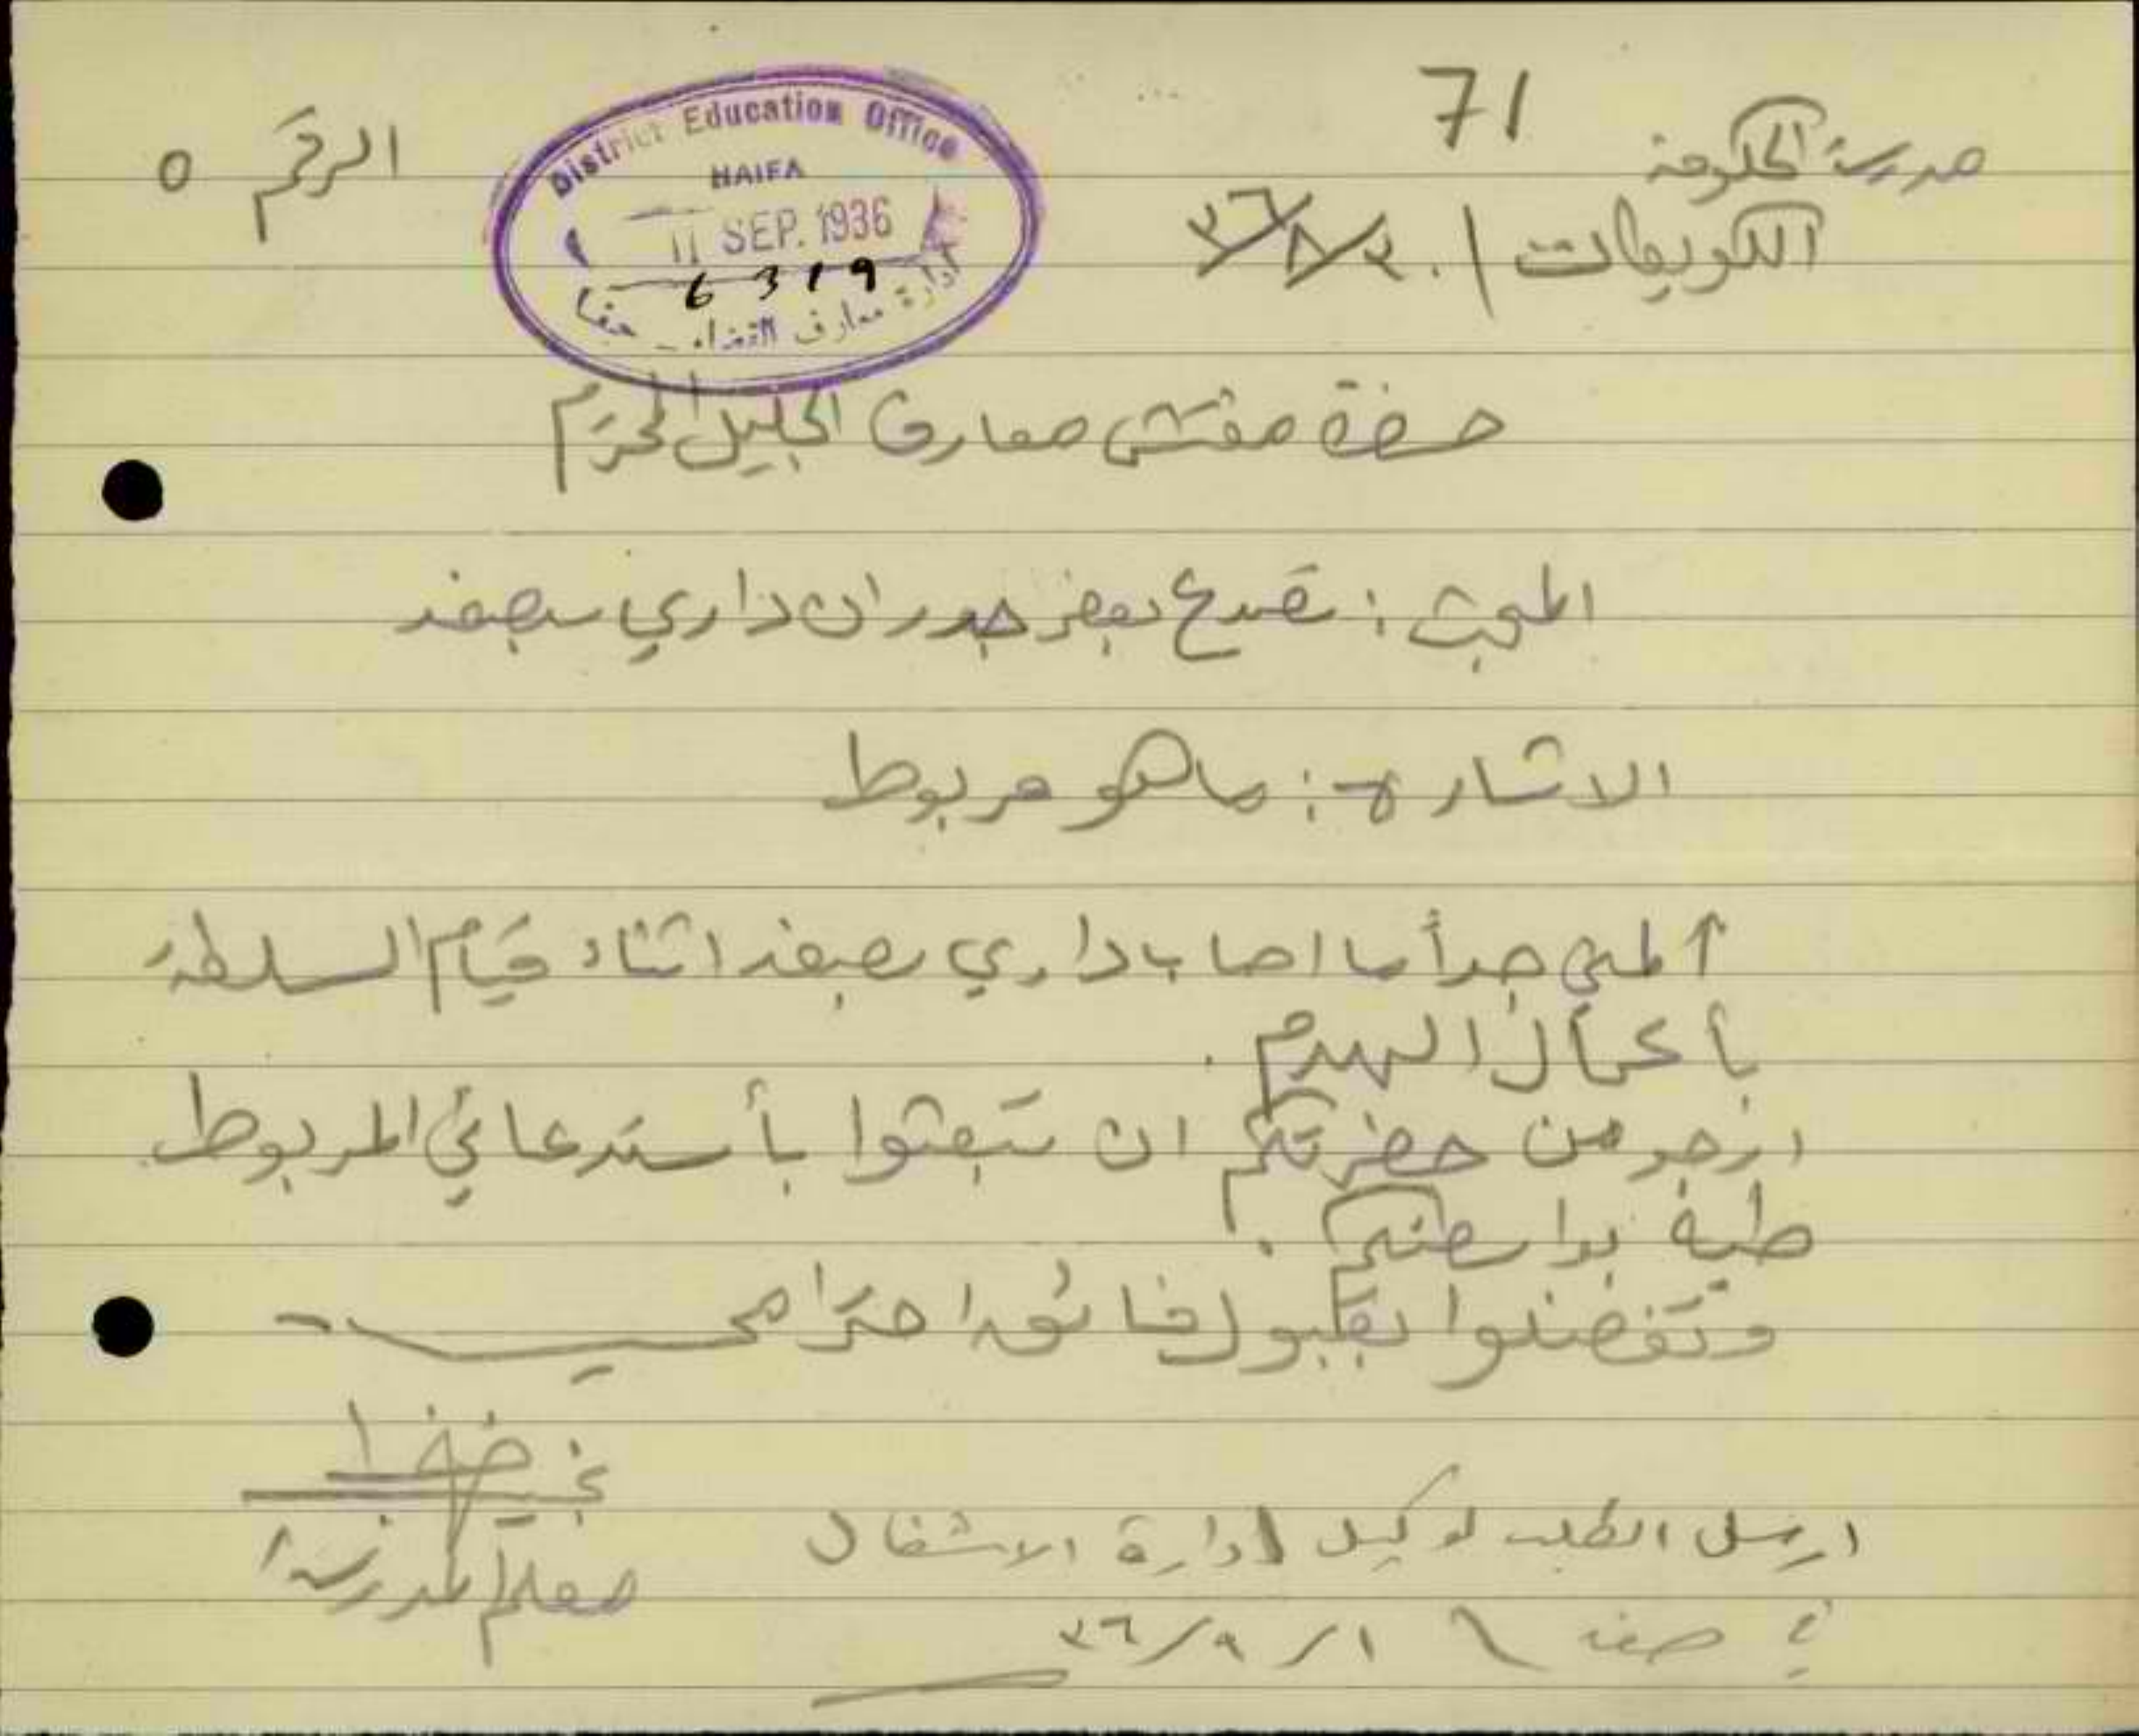 71
مدرسة الحكومة
الكويكات / ٣٦/٨/٢٠
الرقم ٥
District Education Office
HAIFA
11 SEP. 1936
6319
ادارة معارف القضاء - حيفا
حضرة مفتش معارف الجليل المحترم
المبحث : تصدع بعض جدران داري بصفد
الاشارة : ما هو مربوط
ألمني جداً ما اصاب داري بصفد اثناء قيام السلطة
بأعمال الهدم .
ارجو من حضرتكم ان تبعثوا بأستدعائي المربوط
طيه بواسطتكم .
وتفضلوا بقبول فائق احترامي
معلم المدرسة
ارسل الطلب لوكيل ادارة الاشغال
في صفد ٣٦/٩/١